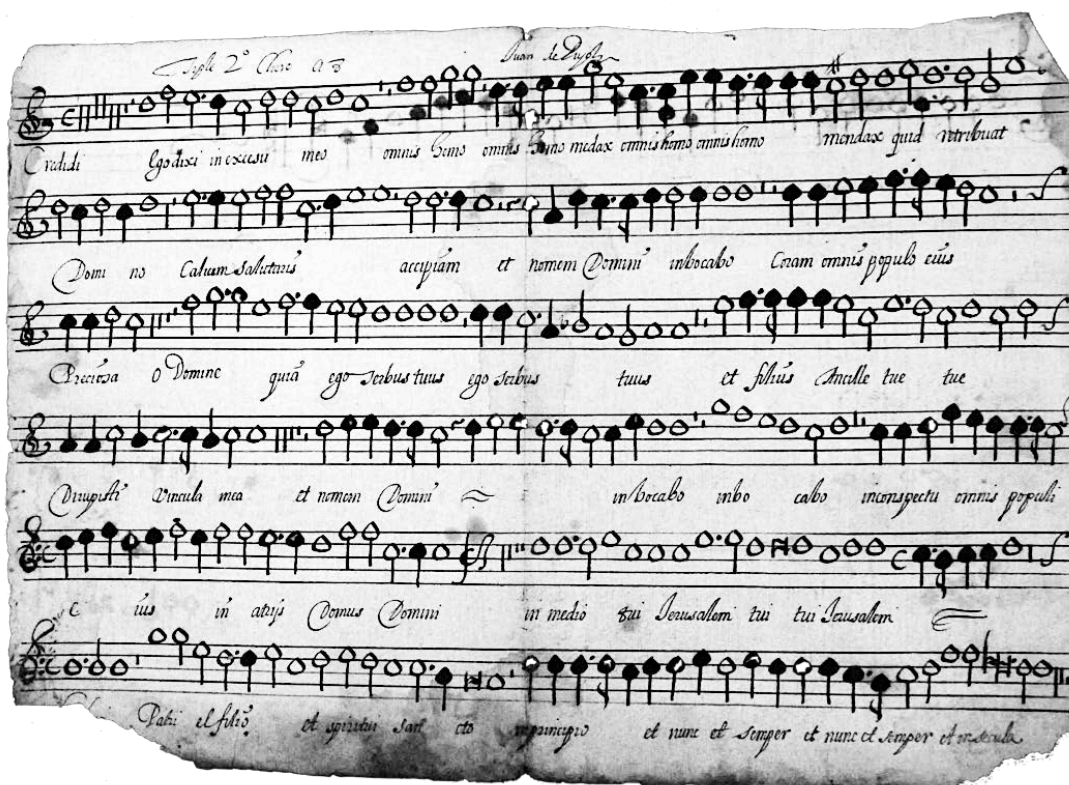 Tiple 2º Choro a 8 Juan de
Credidi Ego dixi in excesu meo omnis homo omnis homo mẽdax omnis homo omnis homo mendax quid retribuat
Domi no Calicem salutaris accipiam et nomem Domini inbocabo Coram omnis populo eius
Preciosa o Domine quiã ego serbus tuus ego serbus tuus et filius Ancille tue tue
Dirupisti Vincula mea et nomem Domini inbocabo inbo cabo inconspectu omnis populi
e ius in atrijs Domus Domini in medio tui Jerusalem tui tui Jerusalem
Patri et filio et spiritui san cto inprincipio et nunc et semper et nunc et semper et in secula